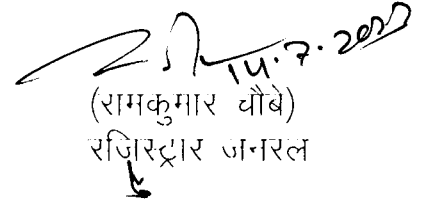 14.7.2023
(रामकुमार चौबे)
रजिस्ट्रार जनरल